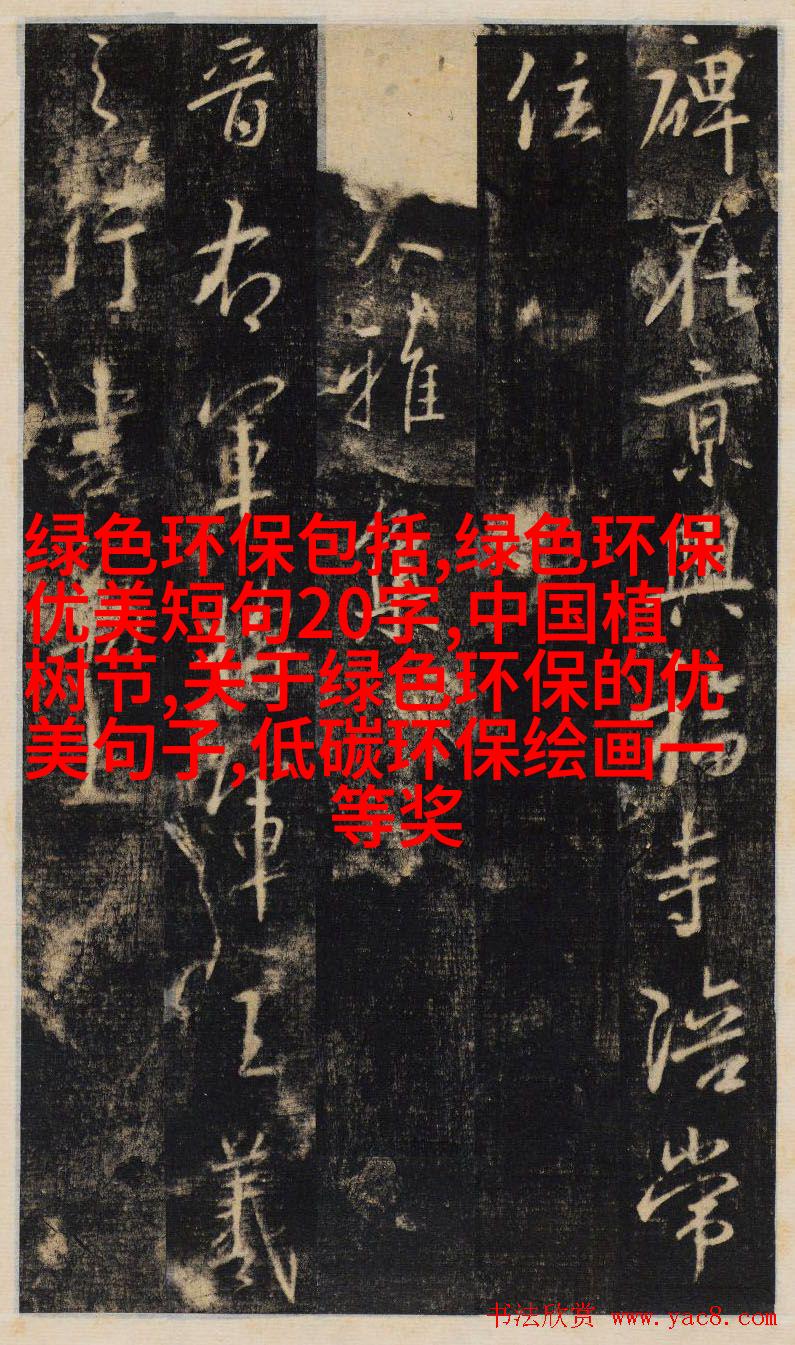 碑在京興福寺陪常
住
大雅集
晉右軍將軍王羲
之行書勒上
绿色环保包括,绿色环保
优美短句20字,中国植
树节,关于绿色环保的优
美句子,低碳环保绘画一
等奖
书法欣赏 www.yac8.com